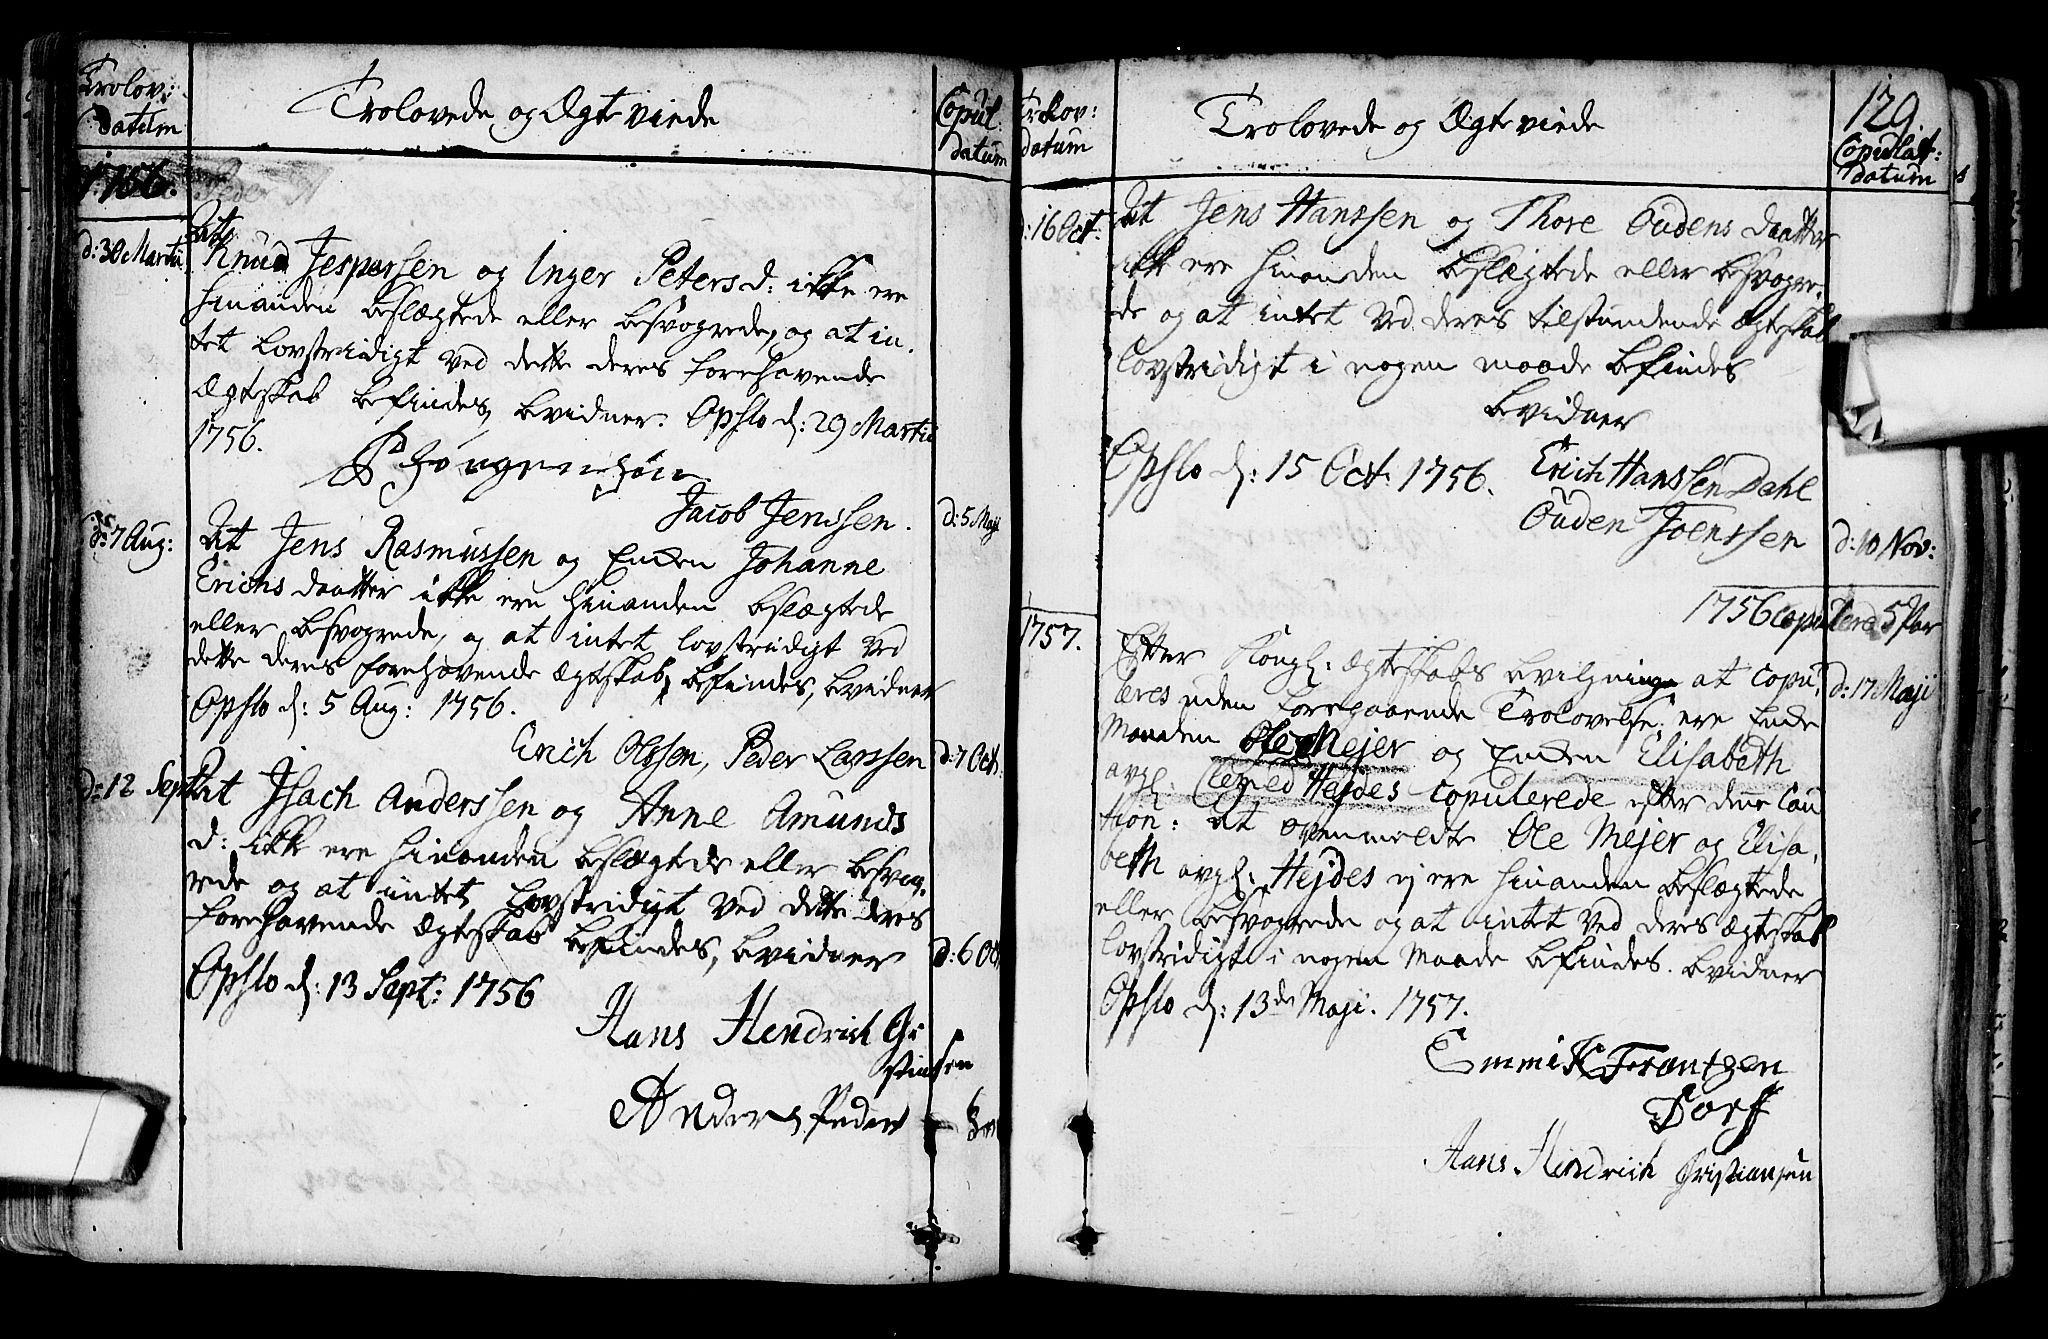 Trolov:
datum
Trolovede og Ægteviede
Copul.
datum
1756.
d: 30 Martii
At
Knud Jespersen og Inger Peters d: ikke ere
hinanden beslægtede eller besvogrede, og at in-
tet lovstridigt ved dette deres forehavende
Ægteskab befindes, bevidner. Opslo d: 29 Martii
1756.
Jacob Jenssen.
d: 5 Maji
d: 7 Aug:
At Jens Rasmussen og Enken Johanne
Erichs daatter ikke ere hinanden beslægtede
eller besvogrede, og at intet lovstridigt ved
dette deres forehavende Ægteskab befindes, bevidner
Opslo d: 5 Aug: 1756.
Erich Olssen, Peder Larssen
d: 7 Oct.
d: 12 Sept.
At Isach Anderssen og Anne Amunds
d: ikke ere hinanden beslægtede eller besvog-
rede og at intet lovstridigt ved dette deres
forehavende Ægteskab befindes, bevidner
d: 6 Oct
Opslo d: 13 Sept: 1756
Hans Hendrich Cri
stiansen
Anders Peder
Sen
Trolov:
datum
Trolovede og Ægteviede
129.
Copulat:
datum
d: 16 Oct:
At Jens Hanssen og Thore Oudens daatter
ikke ere hinanden beslægtede eller besvogre-
de og at intet ved deres tilstundende Ægteskab
lovstridigt i nogen maade befindes
bevidner
Opslo d: 15 Oct. 1756. Erich Hanssen Dahl
Ouden Joenssen
d: 10 Nov:
1756 copulered 5 Par
1757.
Efter Kongl: Ægteskabs bevilgninge at copu-
leres uden foregaaende Trolovelse, ere Enke
d: 17 Maji
Manden Ole Mejer og Enken Elisabeth
avgl: Hejdes copulerede efter denne Cau
tion: At ovenmeldte Ole Mejer og Elisa-
beth avgl: Hejdes ej ere hinanden beslægtede
eller besvogrede og at intet ved deres Ægteskab
lovstridigt i nogen Maade befindes. bevidner
Opslo d: 13de Maji. 1757.
Emmik Frantzen
Hans Hindrich Cristiansen